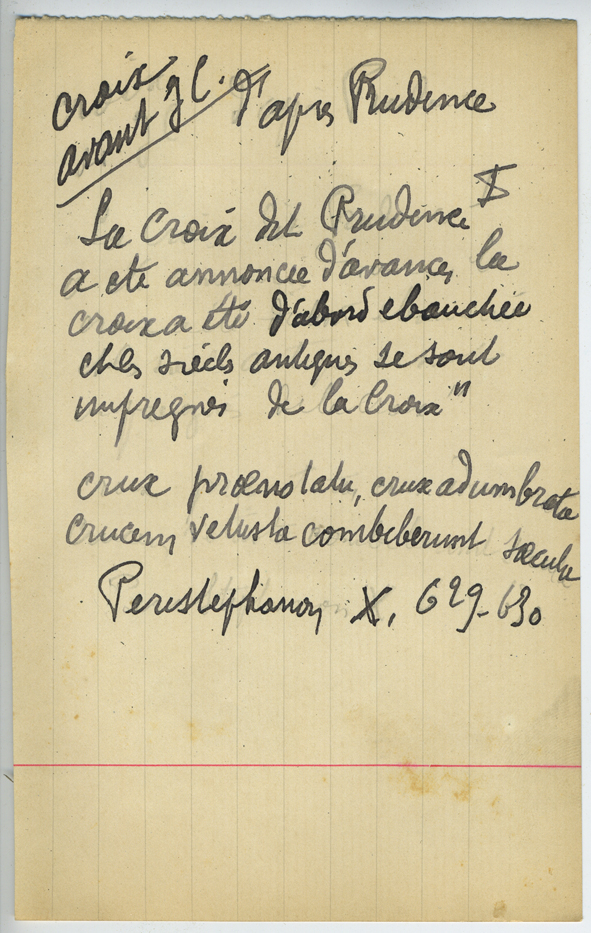 croix
avant J C.
d'après Prudence
La Croix dit Prudence
a été annoncée d'avance, la
croix a été d'abord ebauchée
et les siècls antiques se sont
impregnés de la Croix"
crux prænotatu, crux adumbrata
crucem vetusta combiberunt sæcula
Peristephanon X, 629-630